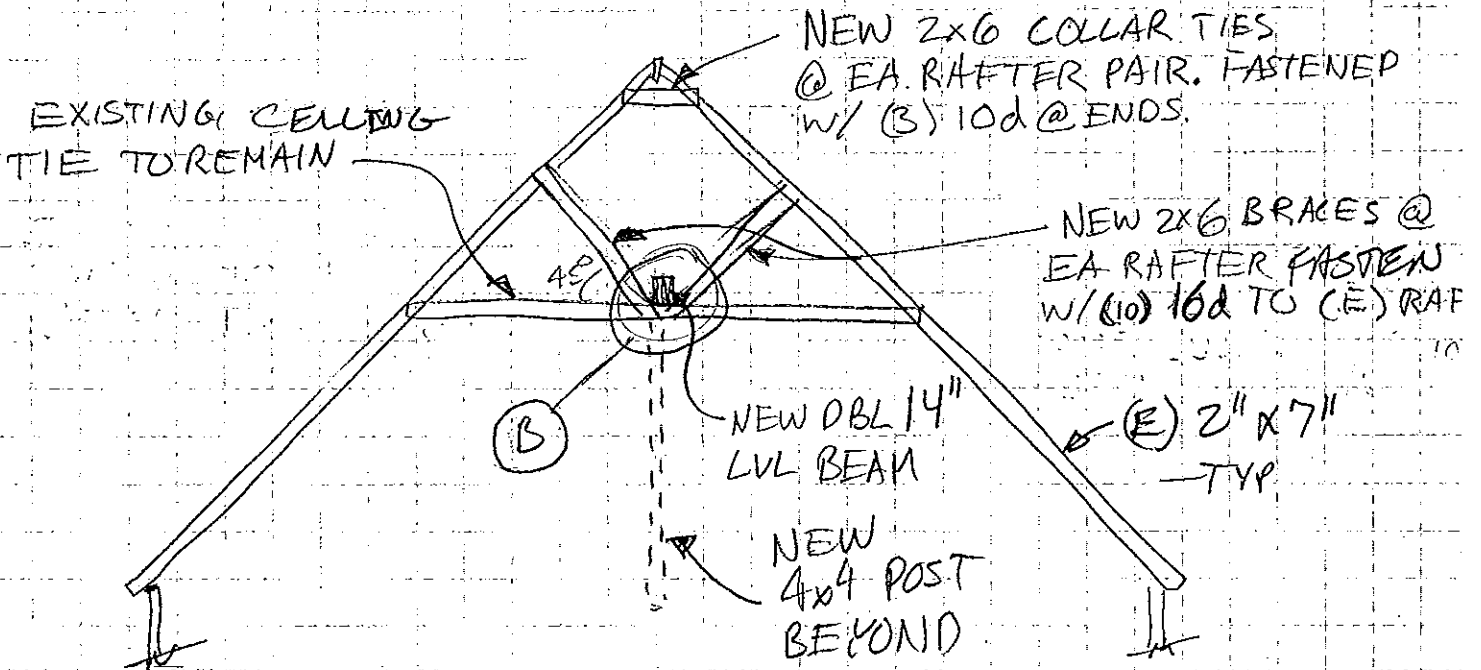 NEW 2x6 COLLAR TIES
@ EA. RAFTER PAIR. FASTENED
W/ (3) 10d @ ENDS.
EXISTING CEILING
TIE TO REMAIN
NEW 2x6 BRACES @
EA RAFTER FASTEN
W/ (10) 16d TO (E) RAF
B
NEW DBL 14"
LVL BEAM
(E) 2" x 7"
—TYP
NEW
4x4 POST
BEYOND